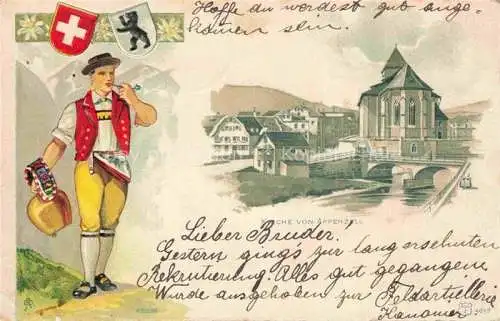 Hoffe du werdest gut ange-
kommen sein.
KIRCHE VON APPENZELL
Lieber Bruder!
Gestern ging's zur langersehnten
Rekrutierung. Alles gut gegangen
Wurde ausgehoben zur Feldartillerie
Kanonier